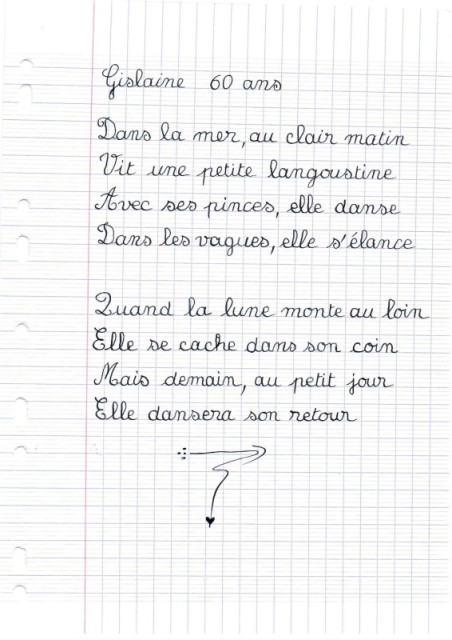 Gislaine 60 ans
Dans la mer, au clair matin
Vit une petite langoustine
Avec ses pinces, elle danse
Dans les vagues, elle s'élance
Quand la lune monte au loin
Elle se cache dans son coin
Mais demain, au petit jour
Elle dansera son retour